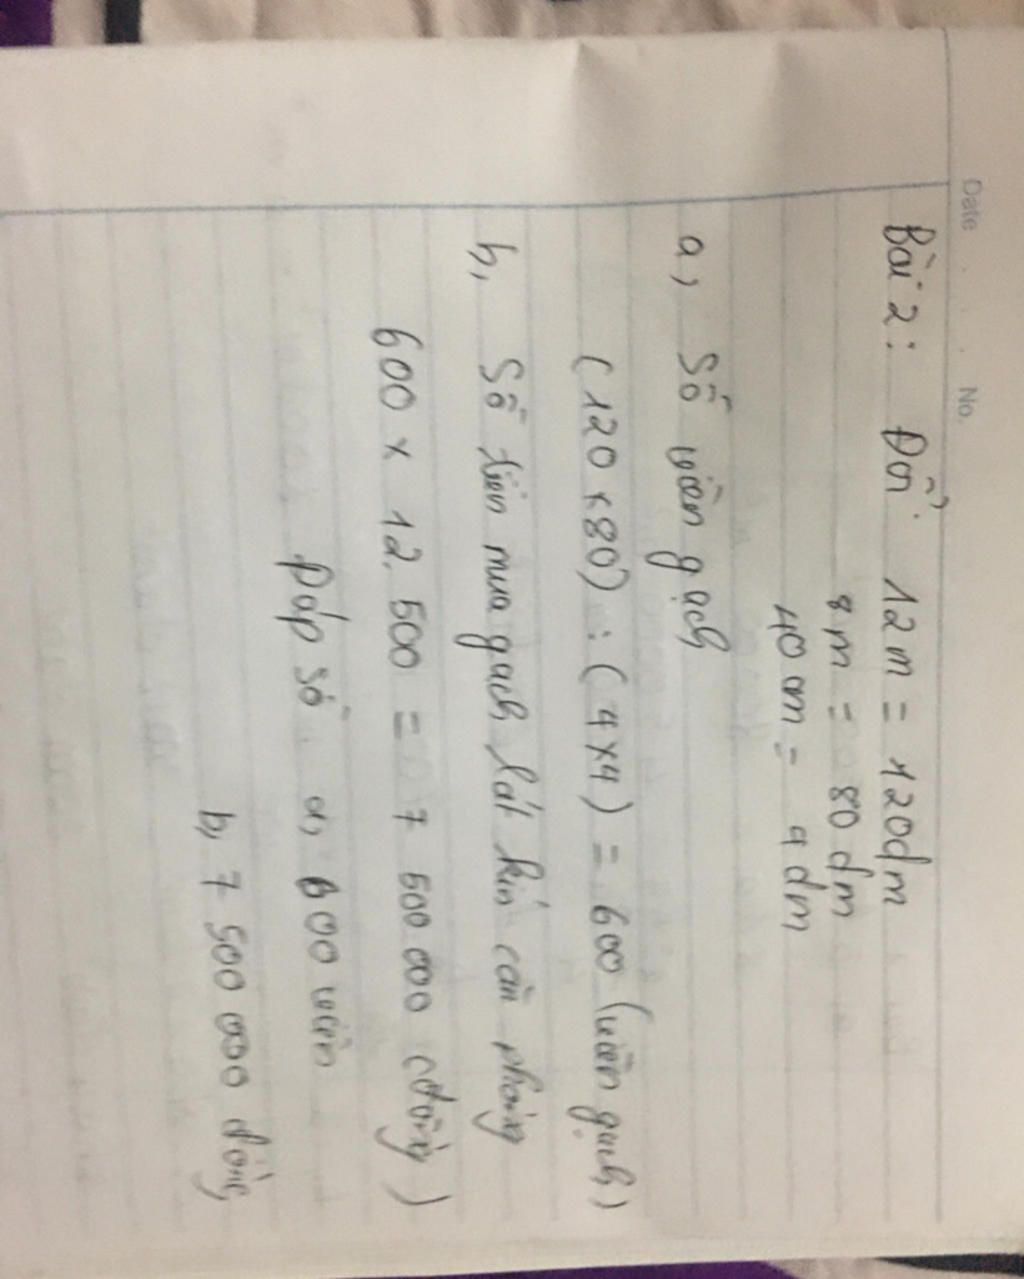 Date No.
Bài 2: Đổi 12m = 120dm
8m = 80dm
40cm = 4dm
a, Số viên gạch
(120 x 80) : (4x4) = 600 (viên gạch)
b, Số tiền mua gạch lát kín căn phòng
600 x 12.500 = 7 500 000 (đồng)
Đáp số a, 600 viên
b, 7 500 000 đồng